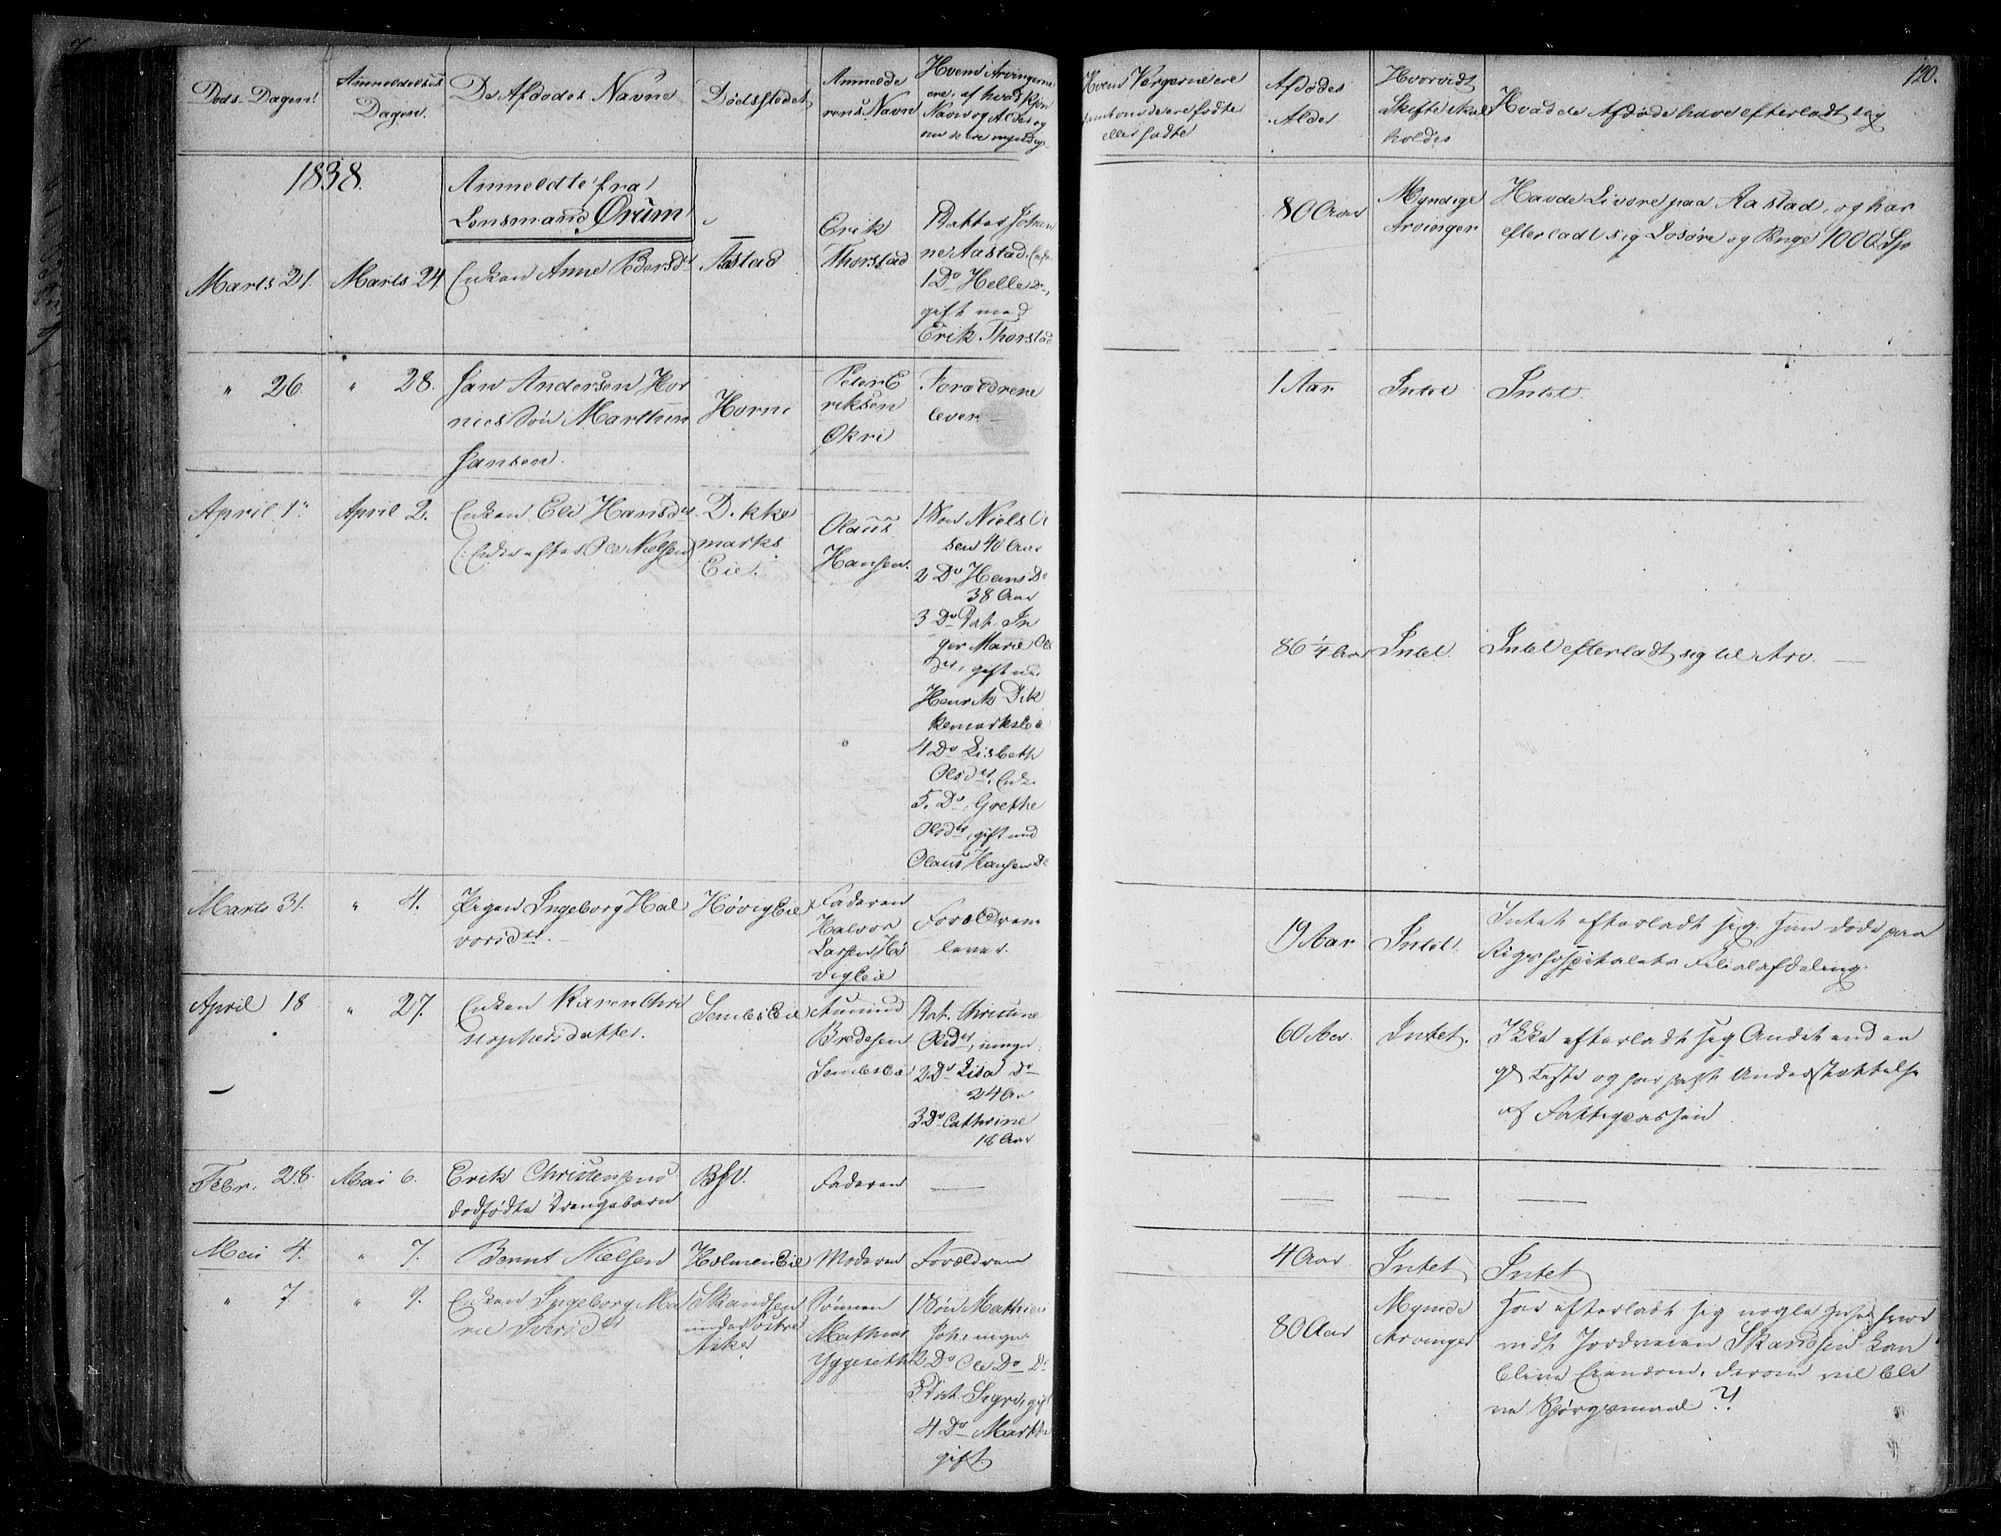 120.
Døds-Dagen.
Anmeldelses
Dagen.
De Afdødes Navne
Dødsstedet
Anmelde
rens Navn
Hvem Arvingerne
ere, af hvad Kjøn
Navn og Alder og
om de ere myndige
Hvem Vergerne ere
samt om de ere fødte
eller fødte
Afdødes
Alder
Hvorvidt
Skifte skal
holdes
Hvad de Afdøde have efterladt sig
1838.
Anmeldte fra
Lensmand Ørum
Marts 21.
Marts 24
Enken Anne Pedersdr
Aastad
Erik
Thorstad
Datter Johan
ne Aastad, Enke
1 Do Helle Do,
gift med
Erik Thorstad
80 Aar
Myndige
Arvinger
Havde Livøre paa Aastad, og har
efterladt sig Løsøre og Penge 1000 Sp
" 26
" 28.
Jan Andersen Hor
nies Søn Marthin
Jansen.
Horni
Peter E
riksen
Økri
Forældrene
lever
1 Aar
Intet
Intet
April 1.
April 2.
Enken Eli Hansdr
(: Enke efter Ole Nielsen)
Dikke
marks
Eie.
Olaus
Hansen.
1 Søn Niels Ol
sen 40 Aar
2 Do Hans Do
38 Aar
3 Do Dat. In
ger Marie Ols
dr, gift med
Henrik Dik
kemarkseie
4 Do Lisbeth
Olsdr, Enke
5. Do, Grethe
Olsdr, gift med
Olaus Hansen D
86 1/4 Aar
Intet.
Intet efterladt sig til Arv.
Marts 31.
" 4.
Pigen Ingeborg Hal
vorsdr.
Høvig Eie
Faderen
Halvor
Larsen Hø
vig Eie
Forældrene
lever.
19 Aar
Intet
Intet efterladt sig. Hun døde paa
Rigshospitalets Filialafdeling.
April 18
" 27.
Enken Karen Chri
stophersdatter.
Sembs Eie
Amund
Bredesen
Sembs Eie
Dat. Christine
Olsdr, myn
2 Do Lisa Do
24 Aar
3 Do Cathrine
18 Aar
60 Aar
Intet.
Ikke efterladt sig Andet end en
gl Kiste og har havt Understøttelse
af Fattigcassen
Febr. 28.
Mai 6.
Erik Christensens
dødfødte Drengebarn
Faderen
Mai 4.
" 7.
Bernt Nielsen
Holmen Eie
Moderen
Forældrene
4 Aar
Intet
Intet
" 7
" 9.
Enken Ingeborg Ma
rie Iversdr
Skandsen
under Østre
Asker
Sønnen
Mathias
Yggeseth
1 Søn Mathias
Joh, myn
2 Do Ole Do Do
3 Dat Sigri, gift
4 Do Marthe
gift.
80 Aar
Mynde
Arvinger
Har efterladt sig nogle Huse, hvor
vidt Jordveien Skandsen kan
blive Eiendom, derom vil bli
ve Spørgsmaal ?!